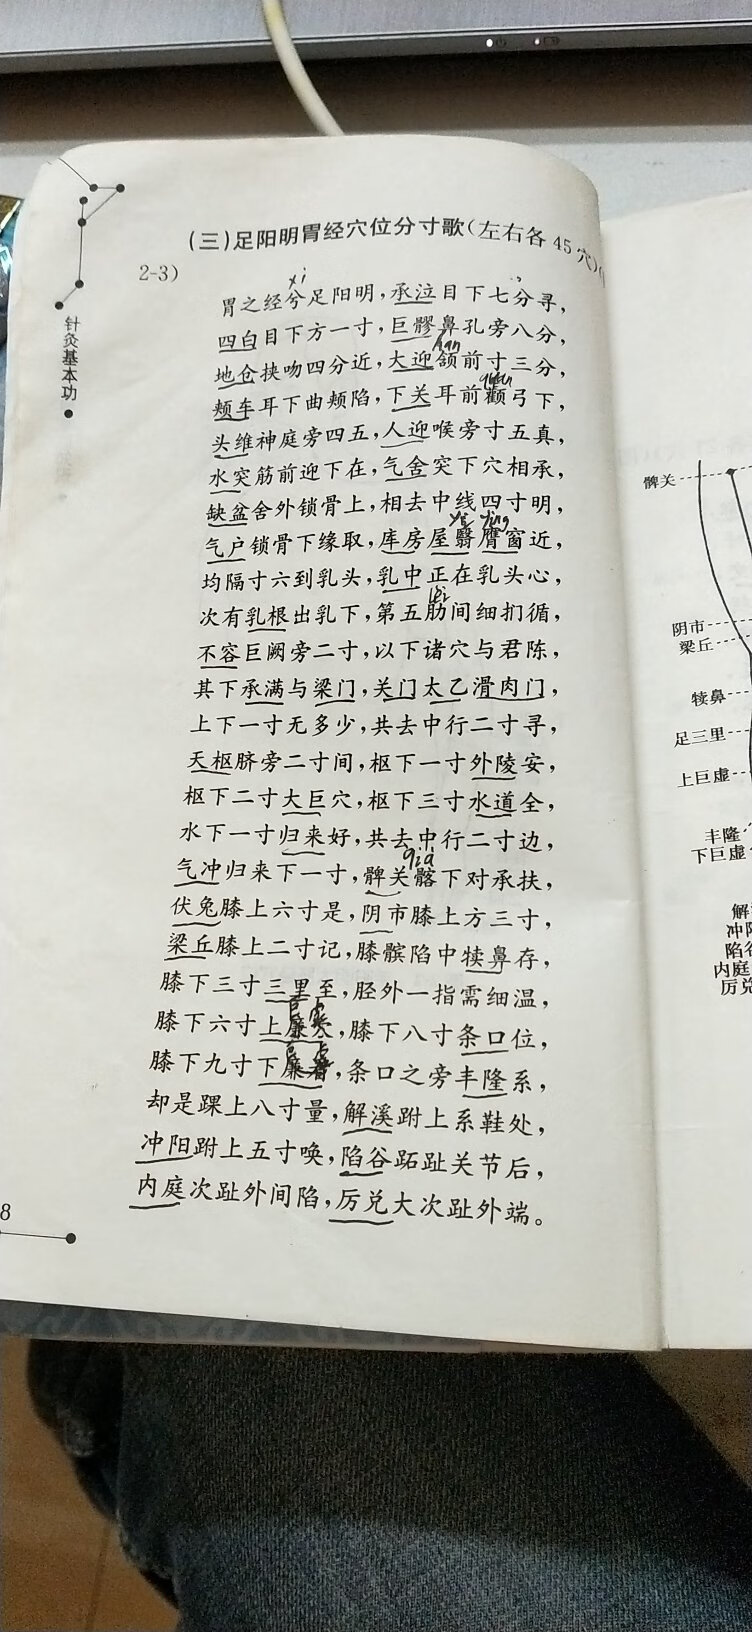 (三)足阳明胃经穴位分寸歌(左右各45穴)(
2-3)
针灸基本功
xi
胃之经兮足阳明,承泣目下七分寻,
四白目下方一寸,巨髎鼻孔旁八分,
han
地仓挟吻四分近,大迎颔前寸三分,
quan
颊车耳下曲颊陷,下关耳前颧弓下,
头维神庭旁四五,人迎喉旁寸五真,
水突筋前迎下在,气舍突下穴相承,
缺盆舍外锁骨上,相去中线四寸明,
yi ying
气户锁骨下缘取,库房屋翳膺窗近,
均隔寸六到乳头,乳中正在乳头心,
lei
次有乳根出乳下,第五肋间细扪循,
不容巨阙旁二寸,以下诸穴与君陈,
其下承满与梁门,关门太乙滑肉门,
上下一寸无多少,共去中行二寸寻,
天枢脐旁二寸间,枢下一寸外陵安,
枢下二寸大巨穴,枢下三寸水道全,
水下一寸归来好,共去中行二寸边,
qia
气冲归来下一寸,髀关髂下对承扶,
伏兔膝上六寸是,阴市膝上方三寸,
梁丘膝上二寸记,膝髌陷中犊鼻存,
膝下三寸三里至,胫外一指需细温,
巨虚
膝下六寸上廉穴,膝下八寸条口位,
巨虚
膝下九寸下廉看,条口之旁丰隆系,
却是踝上八寸量,解溪跗上系鞋处,
冲阳跗上五寸唤,陷谷跖趾关节后,
内庭次趾外间陷,厉兑大次趾外端。
8
髀关
阴市
梁丘
犊鼻
足三里
上巨虚
丰隆
下巨虚
解
冲阳
陷谷
内庭
厉兑